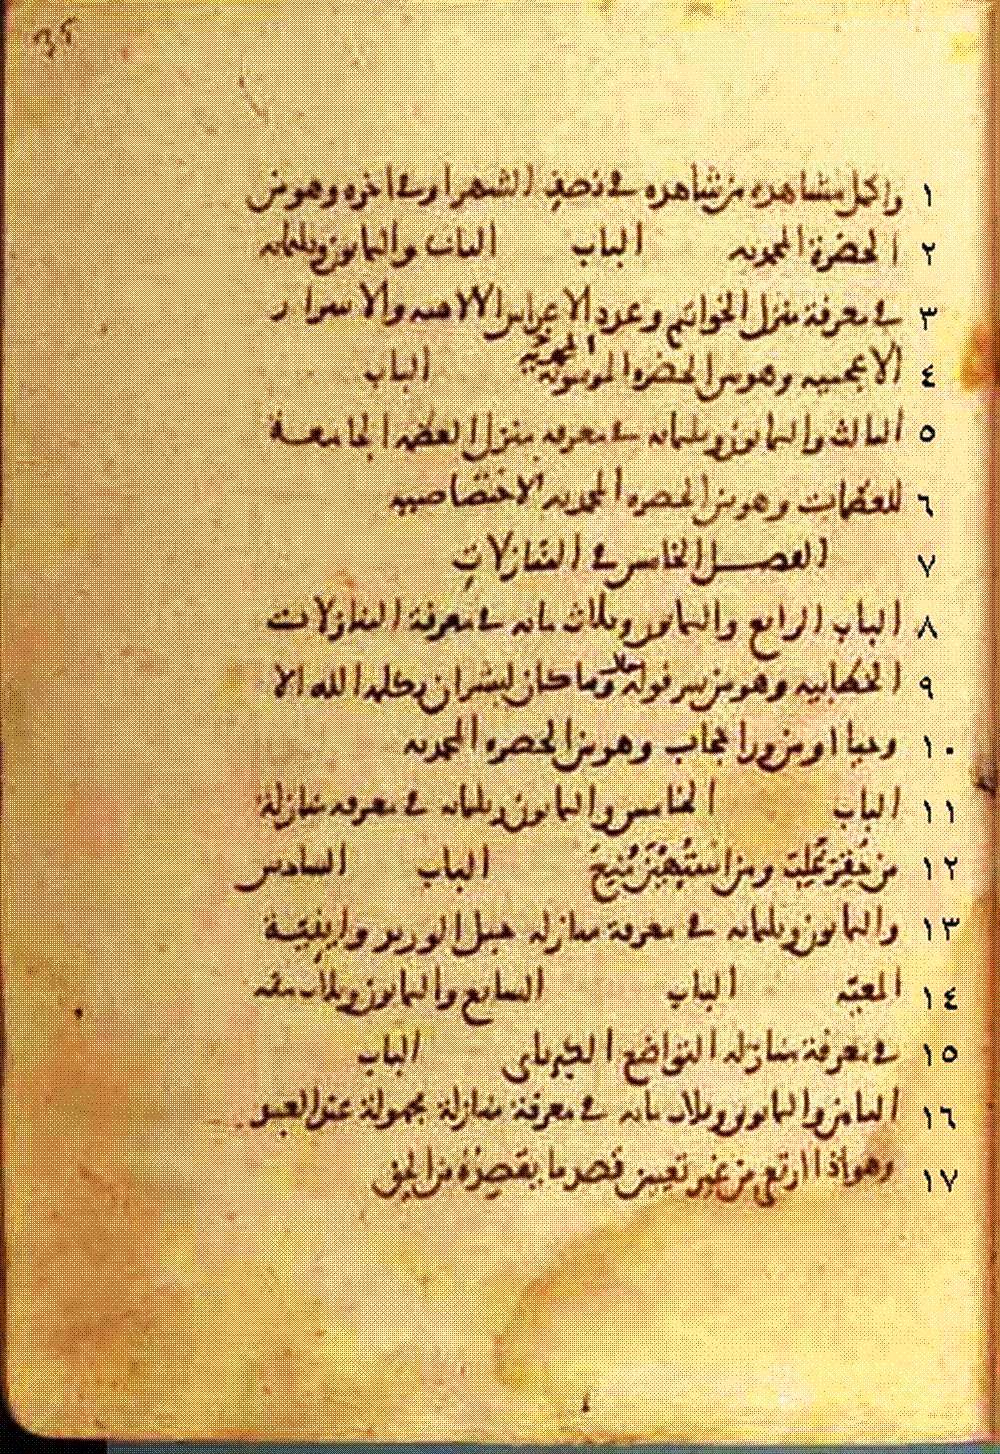 ٣٥
١ واكمل مشاهده من شاهده في نصف الشهر او في اخره وهو من
٢ الحضرة المحمديه الباب الثاني والثمانون وثلثمايه
٣ في معرفة منزل الخواتم وعدد الاعراس الالاهيه والاسرار
٤ الاعجميه وهو من الحضره الموسويه المحمدية الباب
٥ الثالث والثمانون وثلثمايه في معرفه منزل العظمه الجامعة
٦ للعظمات وهو من الحضره المحمديه الاختصاصيه
٧ الفصل الخامس في المنازلات
٨ الباب الرابع والثمانون وثلاث مايه في معرفة المنازلات
٩ الخطابيه وهو من سر قوله وما كان لبشر ان يكلمه الله الا
١٠ وحيا او من ورا حجاب وهو من الحضره المحمديه
١١ الباب الخامس والثمانون وثلثمايه في معرفه منازلة
١٢ من حُقِّرَ غُلِبَ ومن اسْتُهِينَ مُنِعَ الباب السادس
١٣ والثمانون وثلثمايه في معرفة منازله حبل الوريد واينيّة
١٤ المعيّه الباب السابع والثمانون وثلاث مئه
١٥ في معرفة منازله التواضع الكبريائى الباب
١٦ الثامن والثمانون وثلاث مايه في معرفة منازلة مجهولة عند العبد
١٧ وهو اذا ارتقى من غير تعيين قصد ما يقصده من الحق